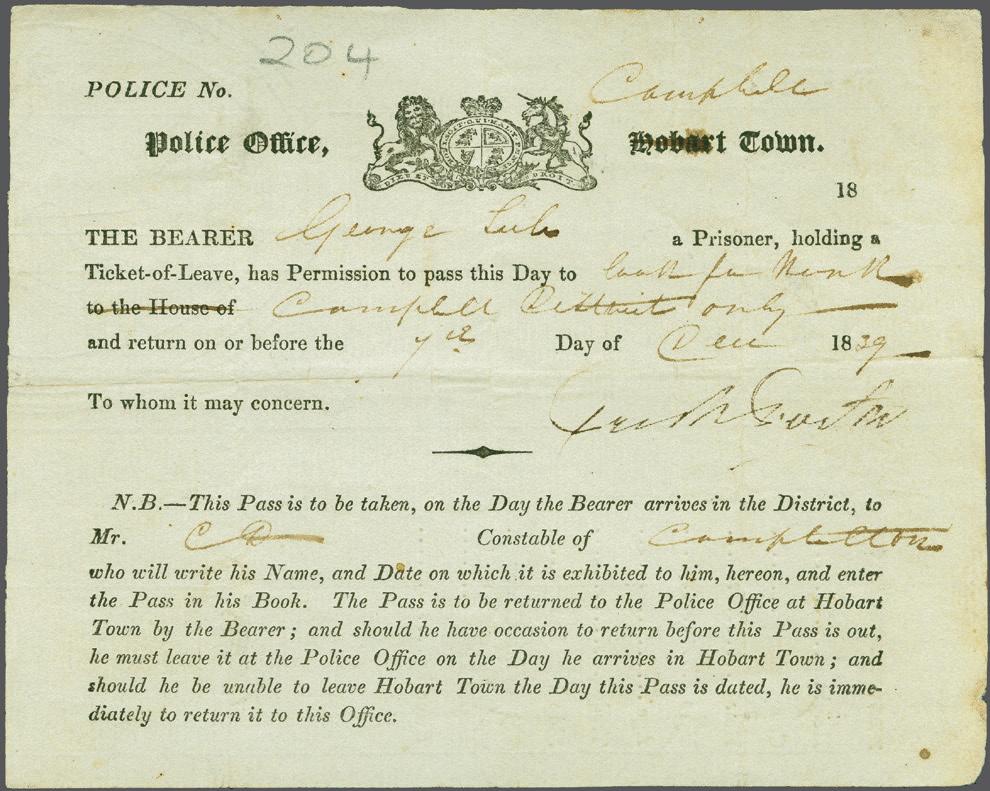 204
POLICE No.
Campbell
Police Office, Hobart Town.
HONI SOIT QUI MAL Y PENSE
DIEU ET MON DROIT
18
THE BEARER George a Prisoner, holding a
Ticket-of-Leave, has Permission to pass this Day to look for Work
to the House of Campbell District only
and return on or before the 7th Day of Dec 1839
To whom it may concern.
N.B.—This Pass is to be taken, on the Day the Bearer arrives in the District, to
Mr. C D Constable of Campbelltown
who will write his Name, and Date on which it is exhibited to him, hereon, and enter
the Pass in his Book. The Pass is to be returned to the Police Office at Hobart
Town by the Bearer; and should he have occasion to return before this Pass is out,
he must leave it at the Police Office on the Day he arrives in Hobart Town; and
should he be unable to leave Hobart Town the Day this Pass is dated, he is imme-
diately to return it to this Office.